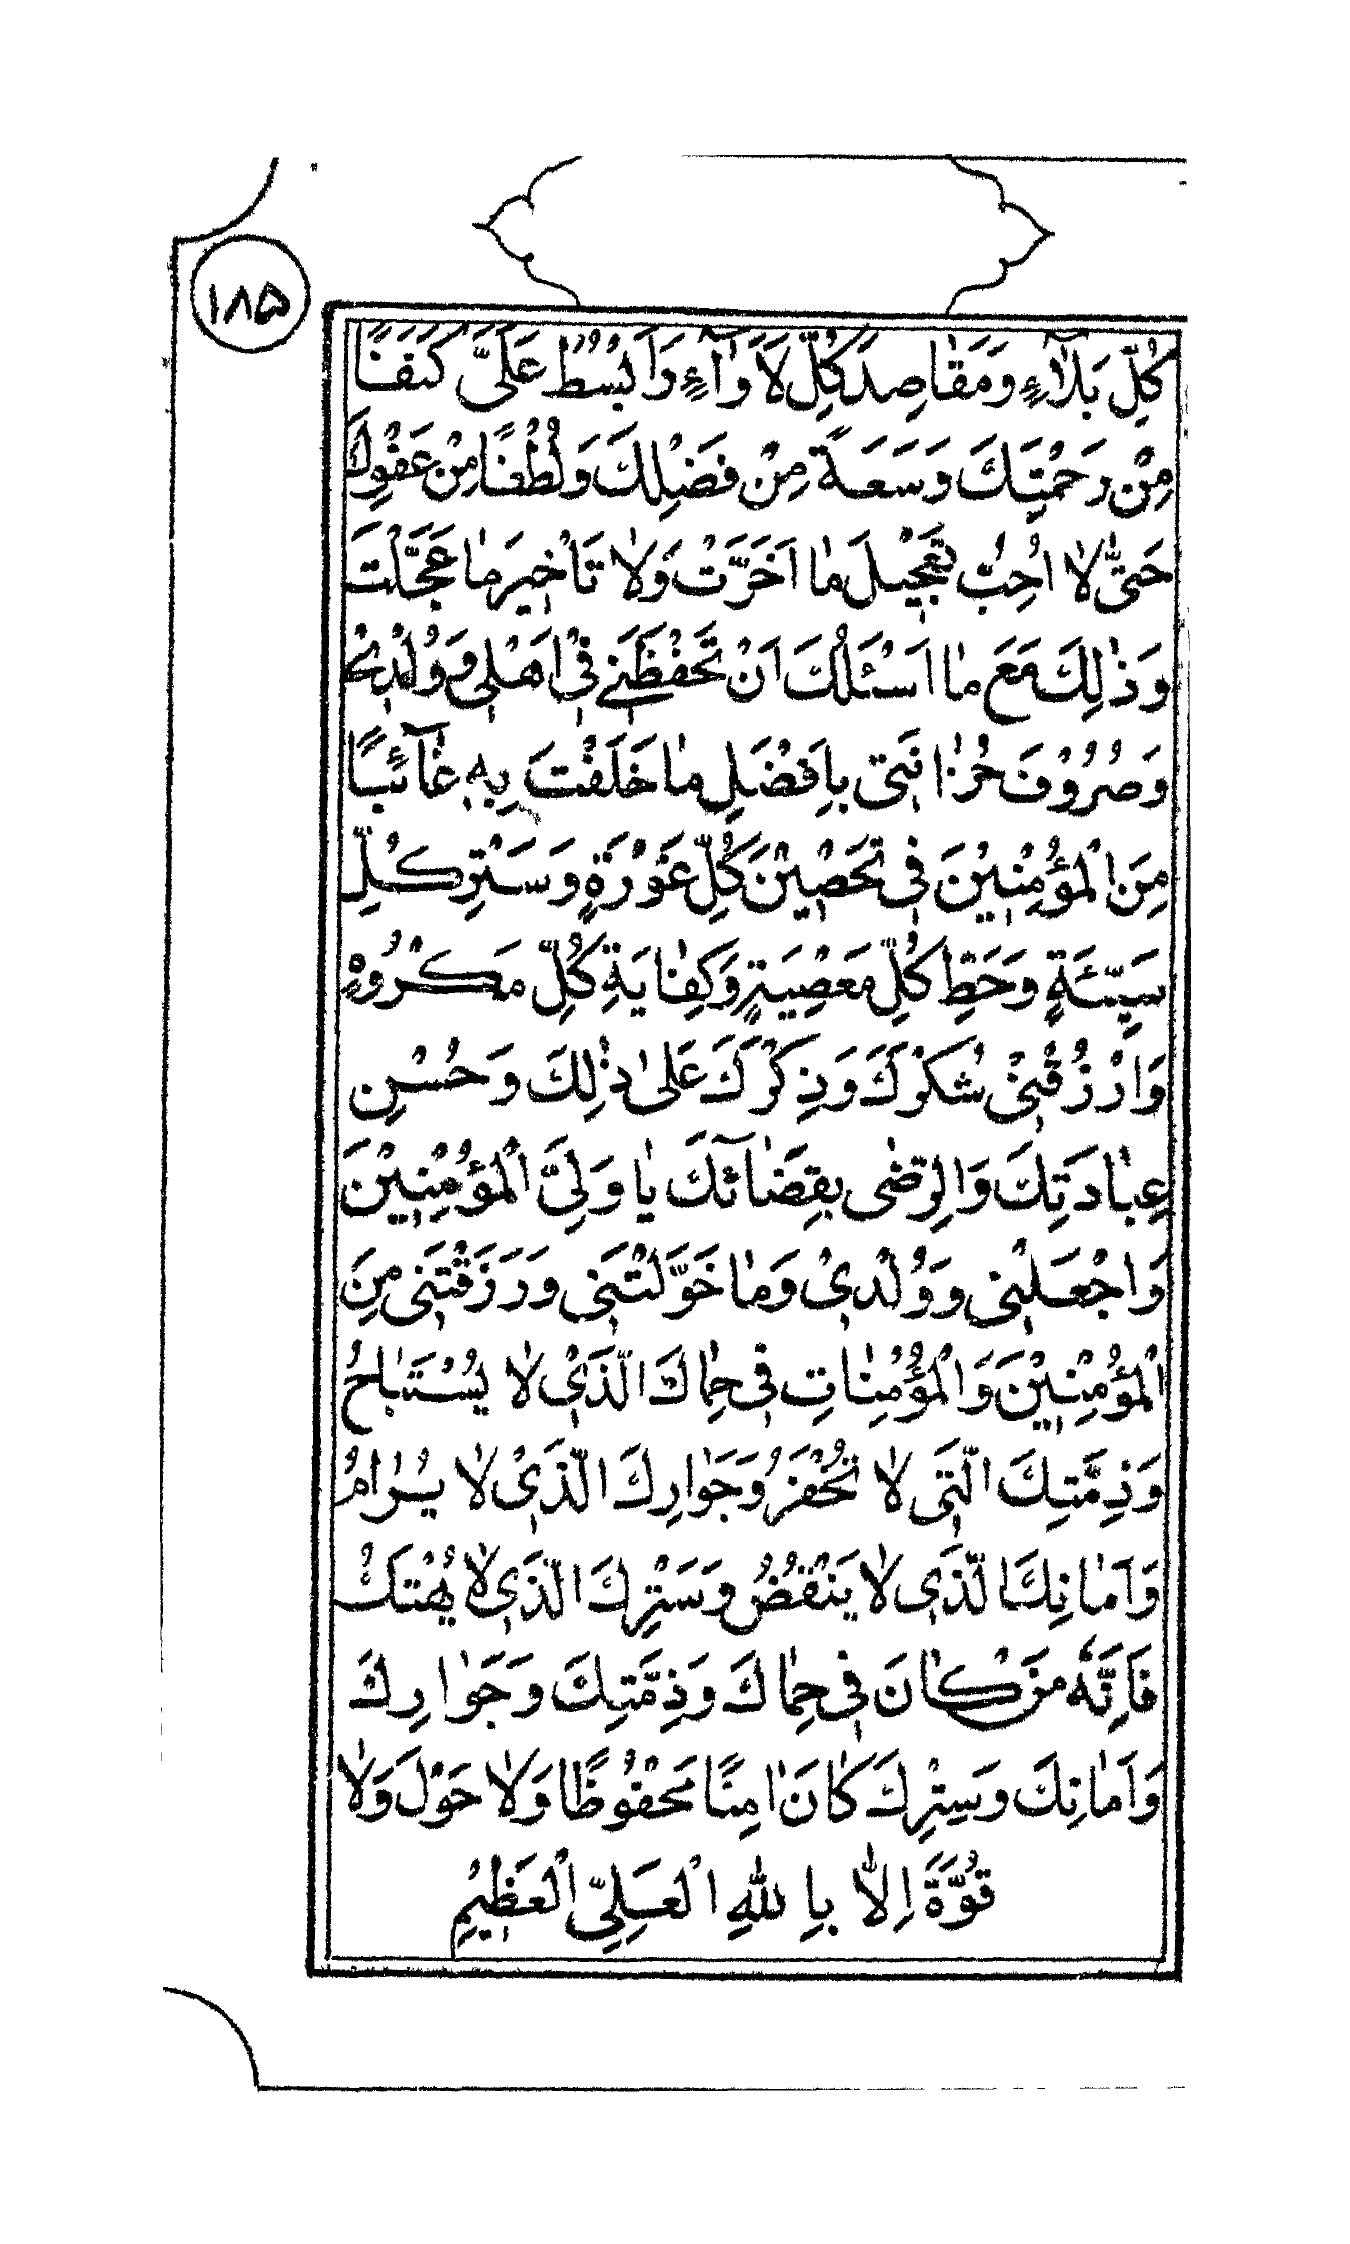 ۱۸۵
كُلِّ بَلَاۤءٍ وَمَقَاصِدَ كُلِّ لَأْوَاۤءٍ وَابْسُطْ عَلَيَّ كَنَفًا
مِنْ رَحْمَتِكَ وَسَعَةً مِنْ فَضْلِكَ وَلُطْفًا مِنْ عَفْوِكَ
حَتّٰى لَا اُحِبَّ تَعْجِيْلَ مَا اَخَّرْتَ وَلَا تَأْخِيرَ مَا عَجَّلْتَ
وَذٰلِكَ مَعَ مَا اَسْئَلُكَ اَنْ تَحْفَظَنِيْ فِيْ اَهْلِي وَوُلْدِيْ
وَصُرُوْفَ حُزَانَتِى بِاَفْضَلِ مَا خَلَفْتَ بِهِ غَاۤئِبًا
مِنَ الْمُؤْمِنِيْنَ فِي تَحْصِيْنَ كُلِّ عَوْرَةٍ وَسَتْرِ كُلِّ
سَيِّئَةٍ وَحَطِّ كُلِّ مَعْصِيَةٍ وَكِفَايَةِ كُلِّ مَكْرُوْهٍ
وَارْزُقْنِيْ شُكْرَكَ وَذِكْرَكَ عَلىٰ ذٰلِكَ وَحُسْنِ
عِبَادَتِكَ وَالرِّضٰى بِقَضَاۤئكَ يَا وَلِيَّ الْمُؤْمِنِيْنَ
وَاجْعَلْنِي وَوُلْدِيْ وَمَا خَوَّلْتَنِي وَرَزَقْتَنِي مِنَ
الْمُؤْمِنِيْنَ وَالْمُؤْمِنَاتِ فِي حِمَاكَ الَّذِيْ لَا يُسْتَبَاحُ
وَذِمَّتِكَ الَّتِي لَا تُخْفَرُ وَجَوَارِكَ الَّذِيْ لَا يُرَامُ
وَاَمَانِكَ الَّذِي لَا يَنْقُضُ وَسَتْرِكَ الَّذِي لَا يُهْتَكُ
فَاِنَّهُ مَنْ كَانَ فِي حِمَاكَ وَذِمَّتِكَ وَجَوَارِكَ
وَاَمَانِكَ وَسِتْرِكَ كَانَ اٰمِنًا مَحْفُوظًا وَلَا حَوْلَ وَلَا
قُوَّةَ اِلَّا بِاللّٰهِ الْعَلِيِّ الْعَظِيْمِ